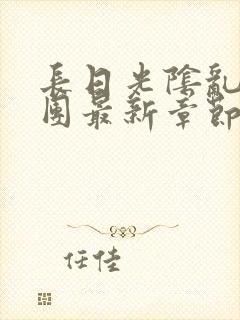 長日光陰亂
團最新章節
任佳